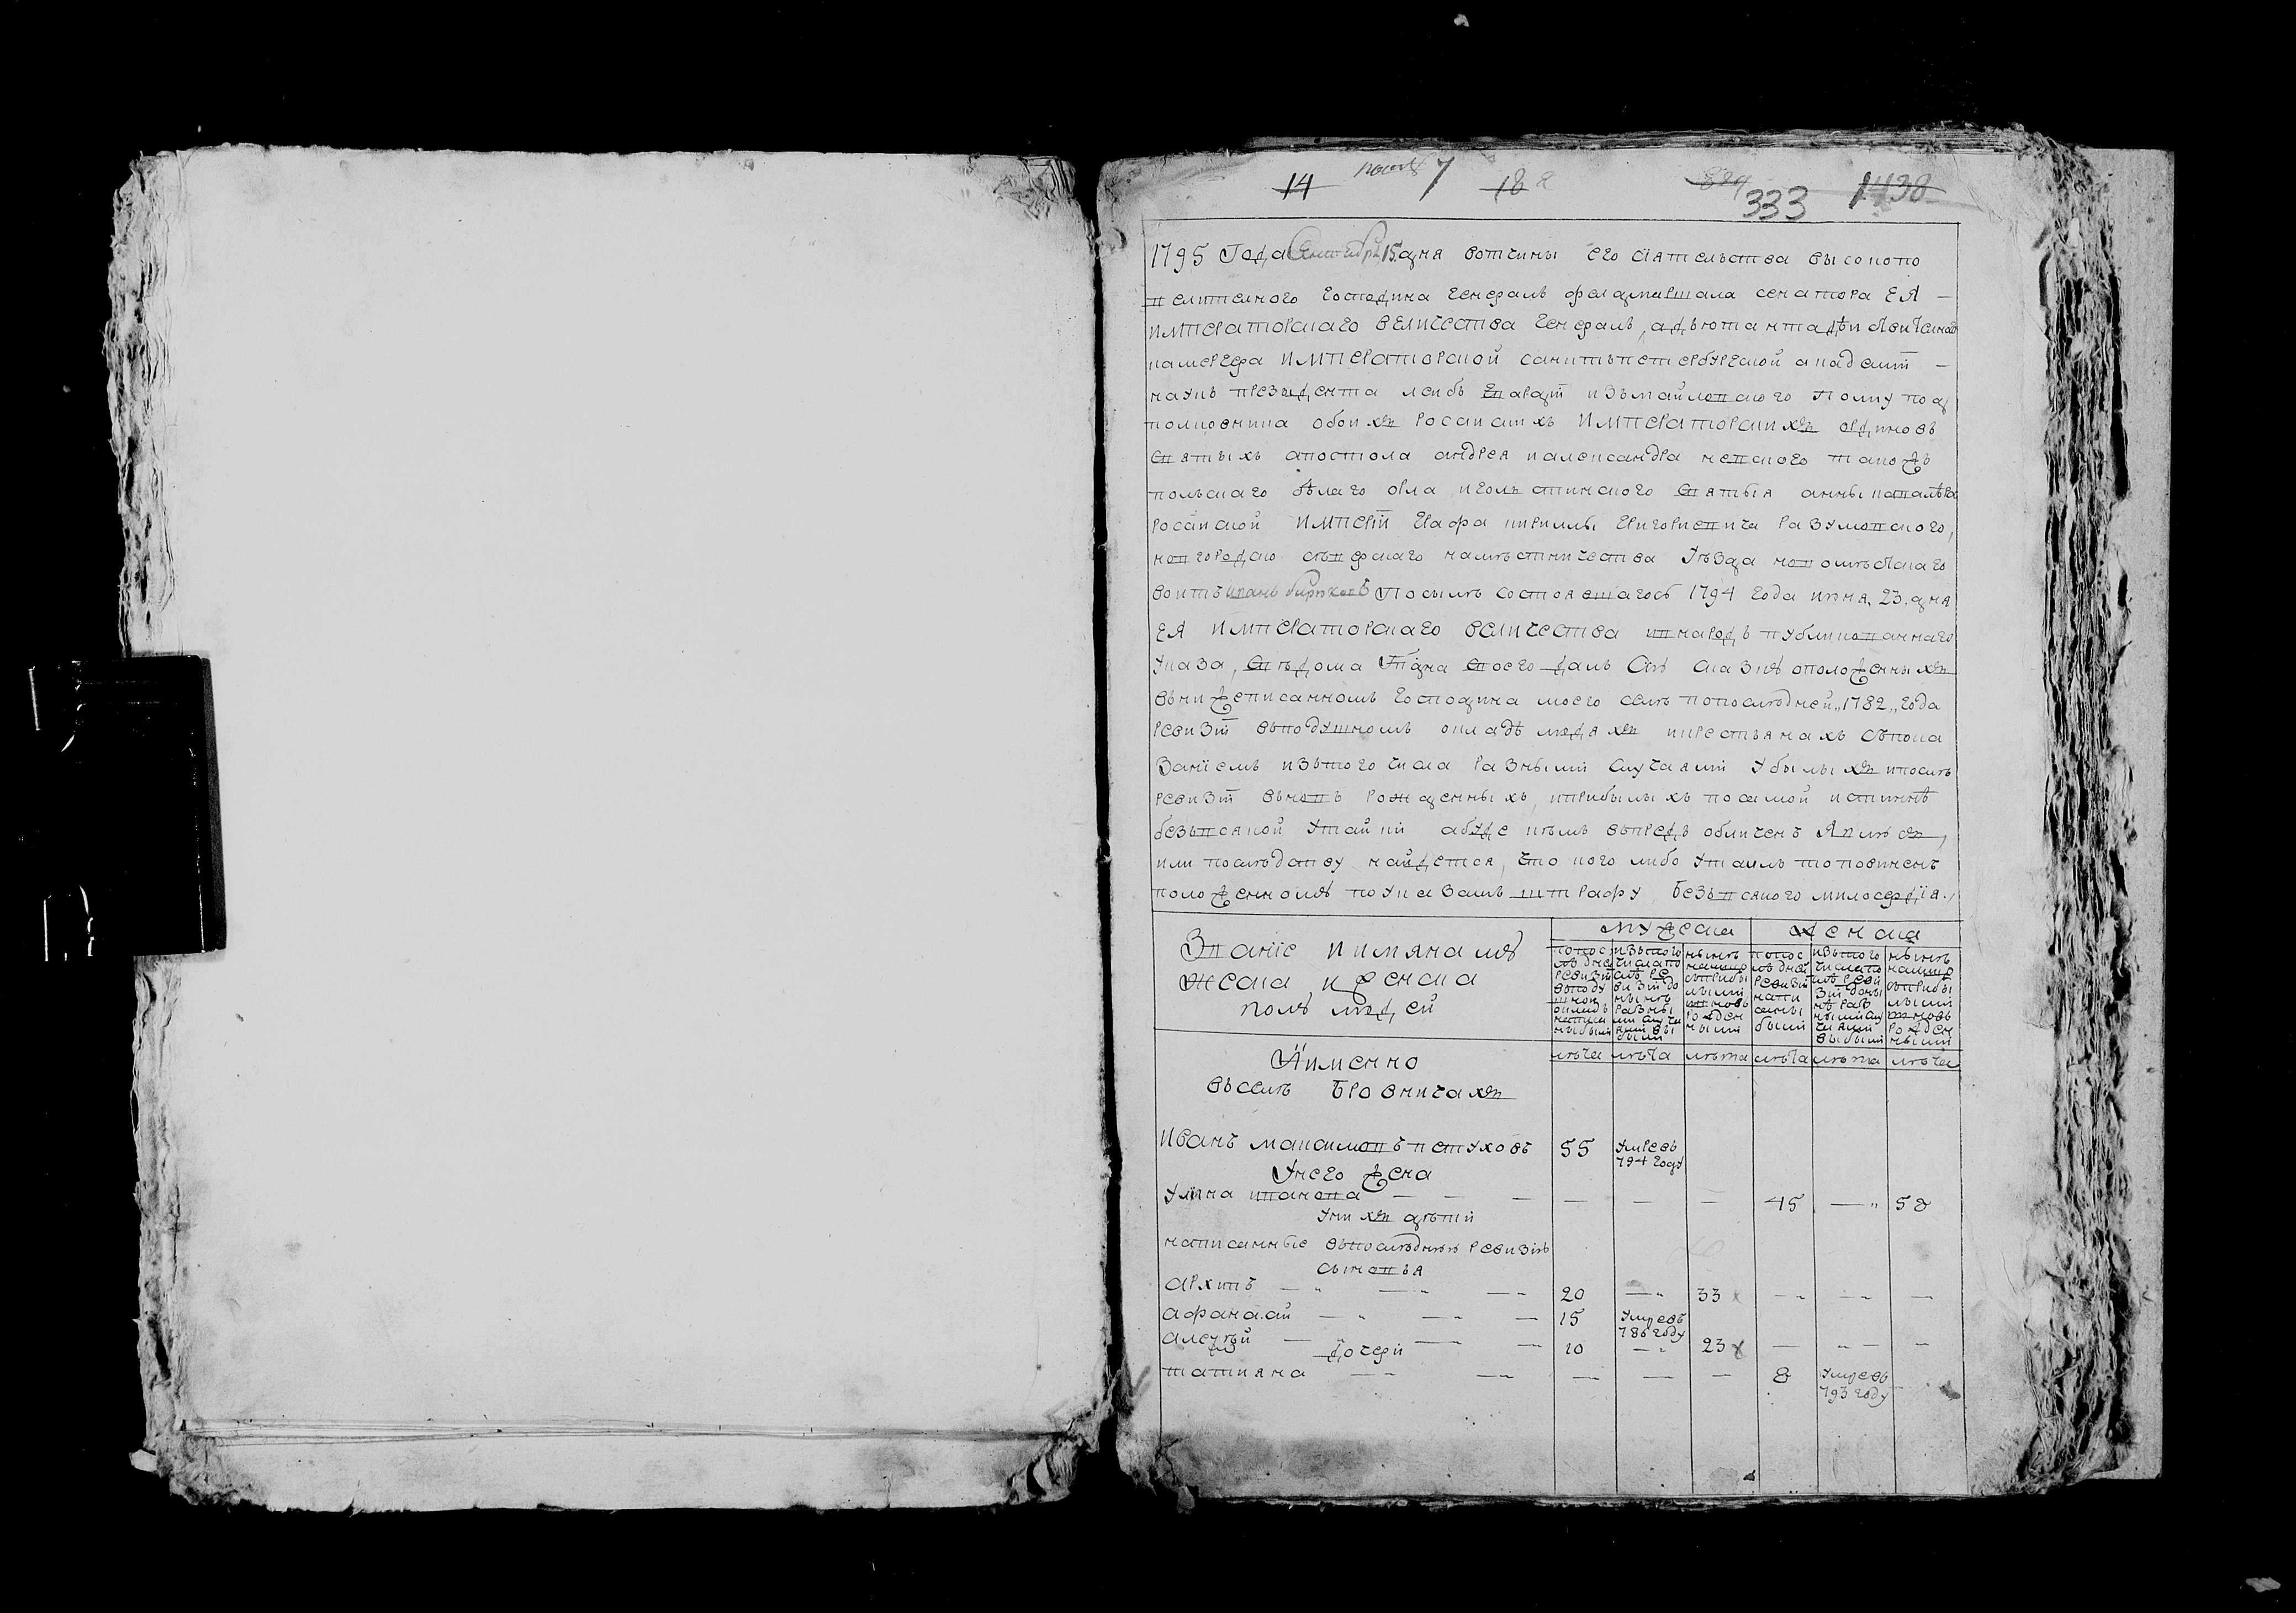 14 7 18 333 1438
1795 Года Сентебря 15 дня вотчины его сиятельства высокопо
велителного господина генералъ фелдмаршала сенатора ЕЯ —
ИМПЕРаторскаго величества генералъ, адъютанта действителной
камергера ИМПЕРаторской санктъпетербурской академiи —
наукъ президента леибъ гвардiи изъмайловского полку под
полковника обоихъ росискихъ ИМПЕРаторскихъ ординовъ
святыхъ апостола андрея иалександра невского такожъ
польскаго белаго орла иголъстинского святыя анны кавалера
росиской ИМПЕРIи графа кирилы григориевича разумовского,
новгородско северскаго наместничества уезда новоместскаго
воитъ иванъ Посылъ состоявшагося 1794 года июня, 23, дня
ЕЯ ИМПЕРаторскаго величества внародъ публикованнаго
указа, далъ сию сказку оположенныхъ
внижеписанномъ господина моего селе попоследней „1782„ года
ревизiи въподушномъ окладе людяхъ икрестьянахъ съпока
занiемъ изътого числа разными случаями убылыхъ ипосле
ревизiи въновъ рожденныхъ, иприбылыхъ посамой истинне
безъвсякой утайки абуде кемъ впредь обличенъ явлюся,
или последству найдется, что кого либо утаилъ топовиненъ
положенному поуказамъ штрафу, безъвсякого милосердiя./
Званiе иимянамъ
жеска и женска
полъ людей
мужеска женска
попос
ледней
ревизiи
вподу
шной
окладъ
написа
ныбыли
изътого
числапо
сле ре
визiи до
ныне
разны
ми случа
ями вы
были
ныне
налицо
съприбы
лыми
ивновъ
рожден
ными
попос
ледней
ревизiи
напи
санны
были
изътого
числапо
сле реви
зiи доны
не раз
ными слу
чаями
выбыли
ныне
налицо
съприбы
лыми
ивновъ
рожден
ными
лета лета лета лета лета лета
Аимено
въселе Бровничахъ
Иванъ макимовъ петуховъ 55 Умревъ
794 году
Унего жена
улiяна иванова — — — — — — 45 — „ 58
унихъ детiй
написанные въпоследнее ревизiе
сыновья
архипъ — „ — „ — „ 20 — „ 33 — „ — „ —
афанасий — „ — „ — 15 Умревъ
786 году
алексей — — — 10 — „ 23 — „ — —
дочери
татияна — „ — „ — — — 8 Умревъ
793 году